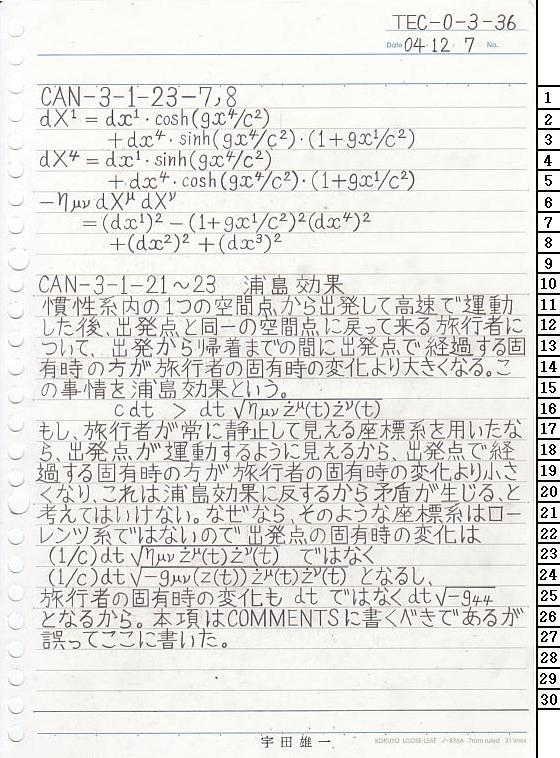 TEC-0-3-36
Date 04・12・7 No.
CAN-3-1-23-7,8
dX¹ = dx¹・cosh(gx⁴/c²)
+dx⁴・sinh(gx⁴/c²)・(1+gx¹/c²)
dX⁴ = dx¹・sinh(gx⁴/c²)
+dx⁴・cosh(gx⁴/c²)・(1+gx¹/c²)
−ημν dXᵘ dXᵛ
=(dx¹)² −(1+gx¹/c²)²(dx⁴)²
+(dx²)² +(dx³)²
CAN-3-1-21〜23 浦島効果
慣性系内の1つの空間点から出発して高速で運動
した後、出発点と同一の空間点に戻って来る旅行者に
ついて、出発から帰着までの間に出発点で経過する固
有時の方が旅行者の固有時の変化より大きくなる。こ
の事情を浦島効果という。
cdt > dt √ημν żᵘ(t)żᵛ(t)
もし、旅行者が常に静止して見える座標系を用いたな
ら、出発点が運動するように見えるから、出発点で経
過する固有時の方が旅行者の固有時の変化より小さ
くなり、これは浦島効果に反するから矛盾が生じる、と
考えてはいけない。なぜなら、そのような座標系はロー
レンツ系ではないので出発点の固有時の変化は
(1/c)dt √ημν żᵘ(t)żᵛ(t) ではなく
(1/c)dt √−gμν(z(t)) żᵘ(t)żᵛ(t) となるし、
旅行者の固有時の変化も dt ではなく dt√−g₄₄
となるから。本項はCOMMENTSに書くべきであるが
誤ってここに書いた。
宇田雄一
KOKUYO LOOSE-LEAF ノ-836A 7mm ruled 31 lines
1
2
3
4
5
6
7
8
9
10
11
12
13
14
15
16
17
18
19
20
21
22
23
24
25
26
27
28
29
30